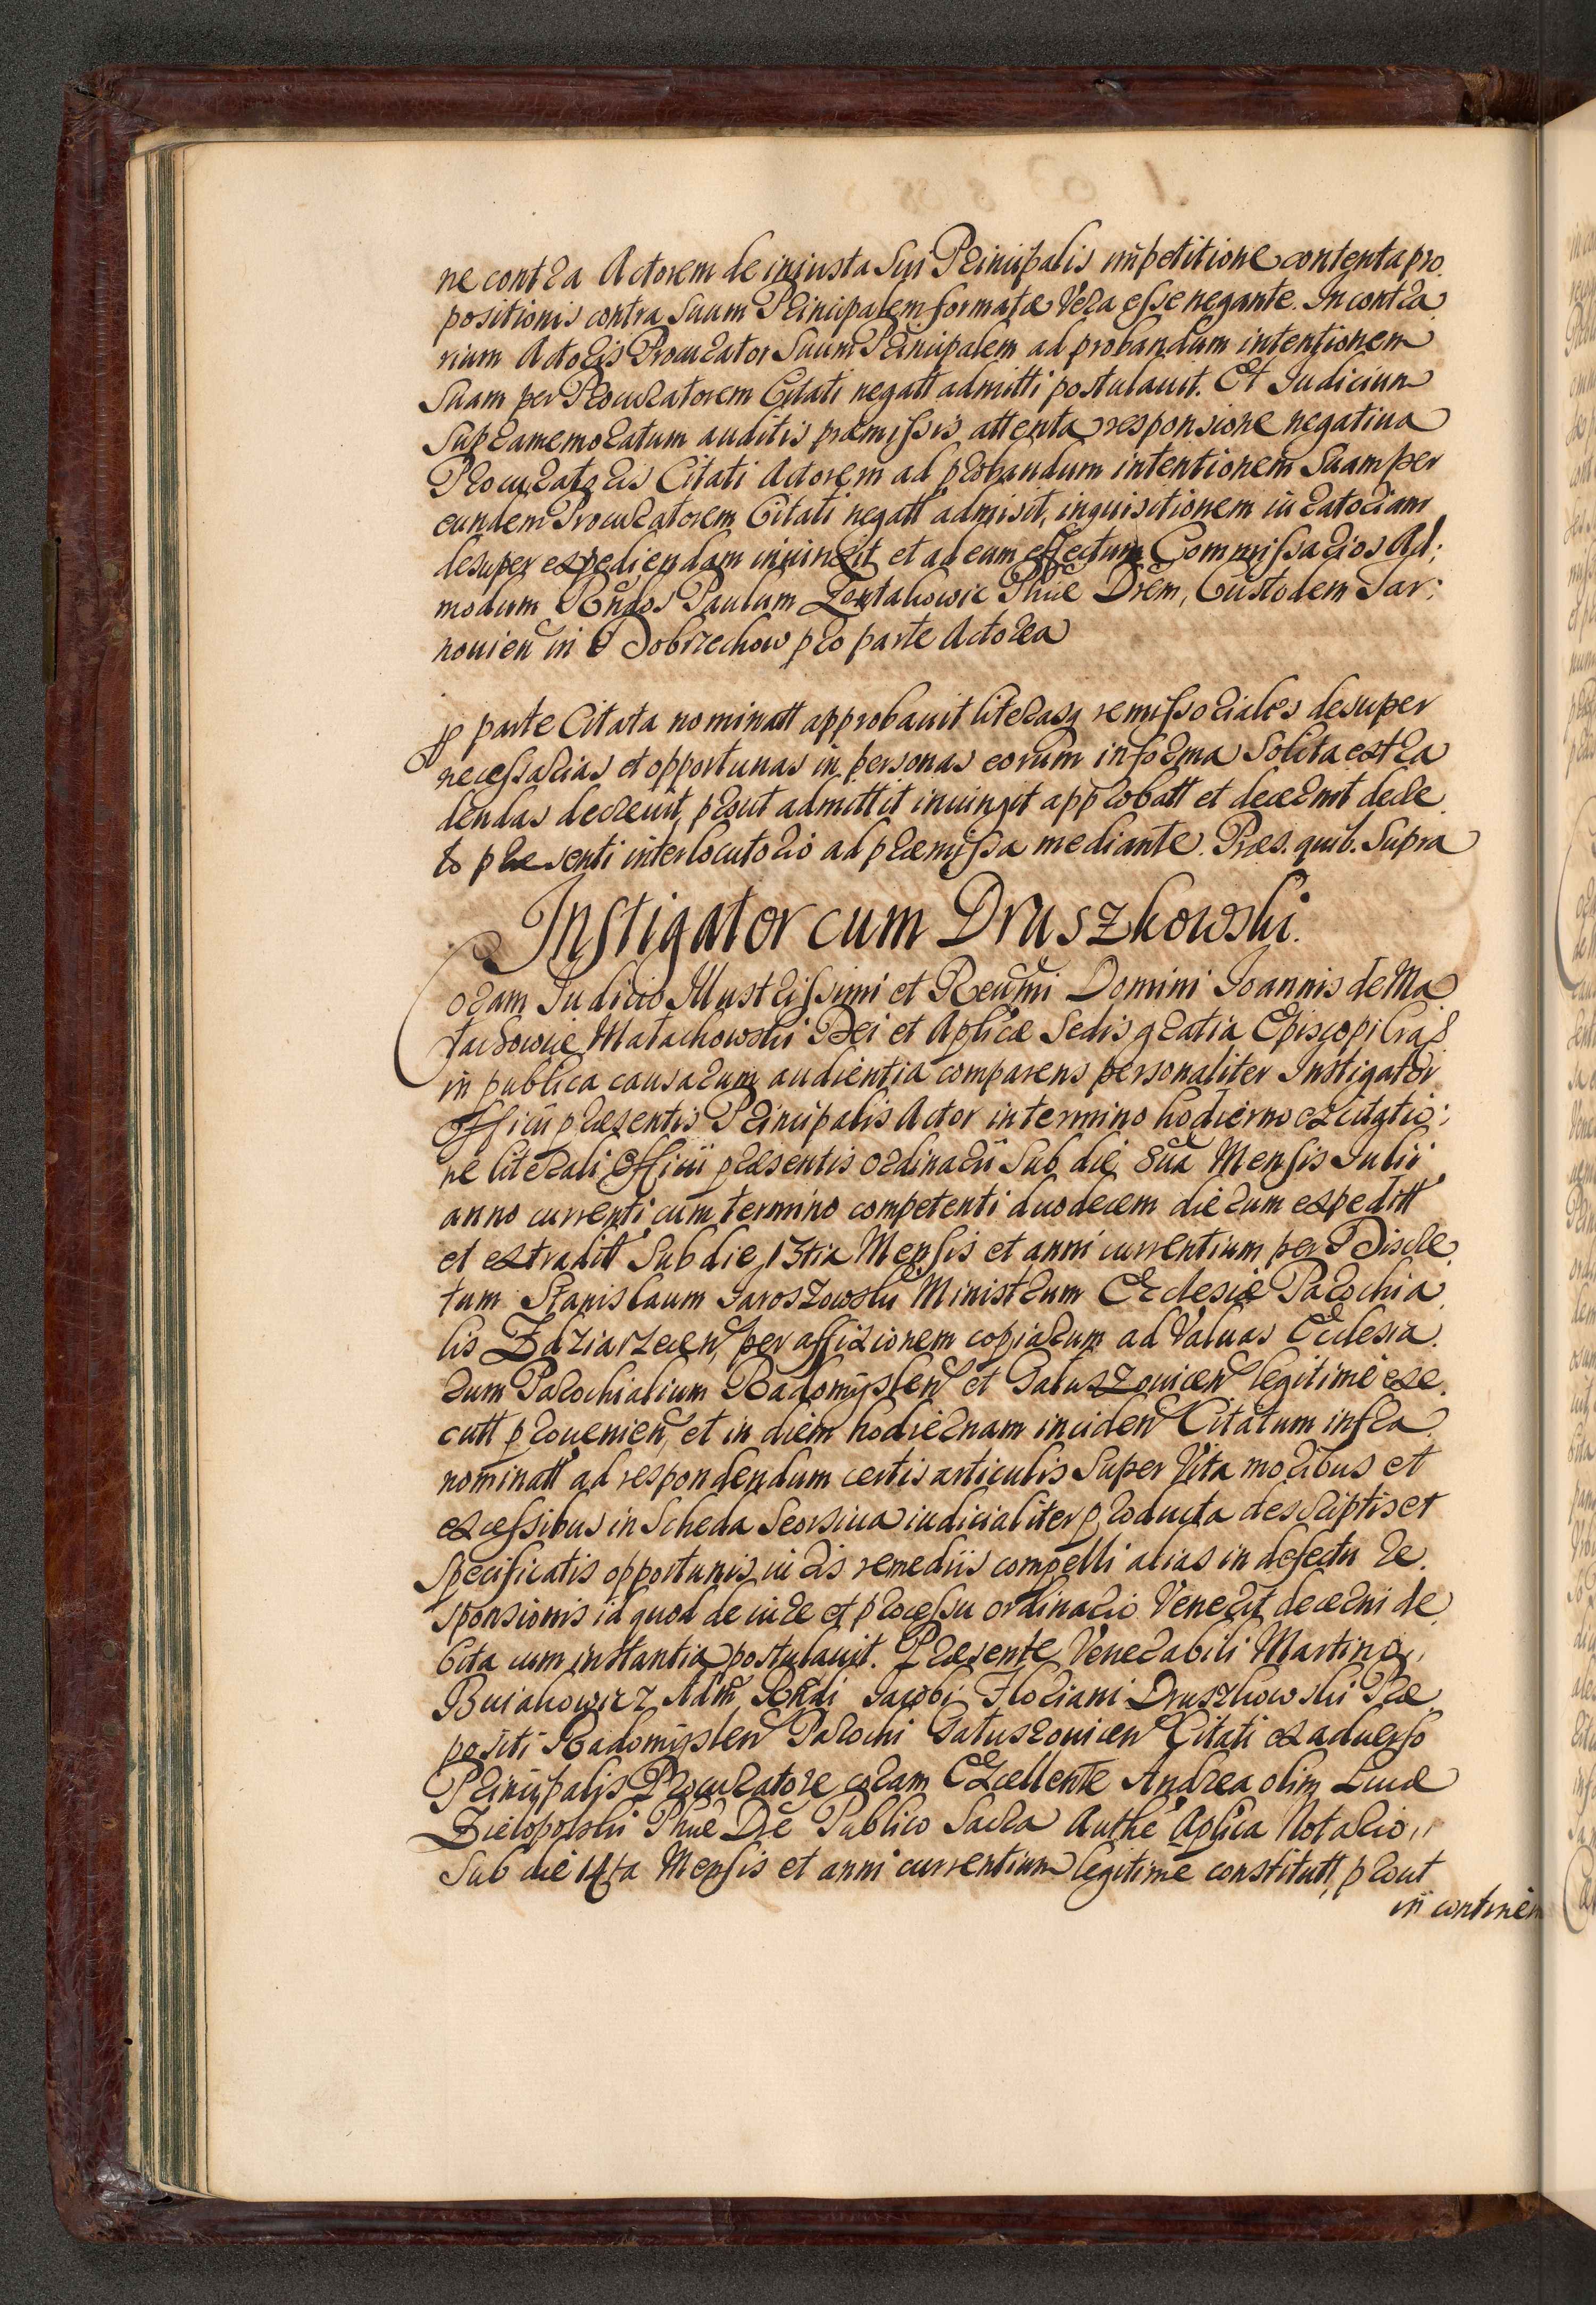 ne contra Actorem de injusta Sui Principalis impetitione contenta pro.
positionis contra Suum Principalem formatæ Vera esse negante. In contra
rium Actoris Procurator Suum Principalem ad probandum intentionem
Suam per Procuratorem Citati negatt admitti postulauit. Et Iudicium
Supramemoratum auditis præmissis attenta responsione negatiua
Procuratoris Citati Actorem ad probandum intentionem Suam per
eundem Procuratorem Citati negatt admisit, inquisitionem iuratoriam
desuper expediendam iniunxit et ad eum effectum Commissarios Ad:
modum Rñdos Paulum Phiæ Drem, Custodem Tar:
nouien in Dobrzechow pro parte Actorea
p parte Citata nominatt approbauit literasq remissoriales desuper
necessarias et opportunas in personas eorum in forma Solita extra
dendas decreuit, prout admittit iniungit approbatt et decernit decre
to præsenti interlocutorio ad præmissa mediante. Præs. quib. Supra
Instigator cum Druszkowski.
Coram Iudicio Illustrissimi et Reũmi Domini Ioannis de Ma
Małachowski Dei et Aplicæ Sedis gratia Episcopi Crac
in publica causarum audientia comparens personaliter Instigator
Officii præsentis Principalis Actor in termino hodierno ex citatio:
ne literali Officii præsentis ordinarii Sub die 8ua Mensis Iulii
anno currenti cum termino competenti duodecem dierum expeditt
et extraditt Sub die 13tia Mensis et anni currentium per Discre
tum Stanislaum Jaroszowski Ministrum Ecclesiæ Parochia
lis Zdziarzecen per affixionem copiarum ad Valuas Ecclesia.
rum Parochialium Radomyslen et Gatuszouicen legitime exe.
cutt prouenien, et in diem hodiernam inciden Citatum infra
nominatt ad respondendum certis articulis Super Vita moribus et
excessibus in Scheda Seorsiua iudicialiter producta descriptis et
Specificatis opportunis iuris remediis compelli alias in defectu re.
sponsionis id quod de iure et processu ordinario Venerit decerni de
bita cum instantia postulauit. Præsente Venerabili Martino
Buiakowicz Adm Rñdi Jacobi Floriani Druszkowski Præ
positi Radomyslen Parochi Gatuszouicen Citati ex aduerso
Principalis Procuratore coram Excellente Andrea olim Lucæ
Zielopolski Phiæ Dre Publico Sacra Authe Aplica Notario
Sub die 14ta Mensis et anni currentium legitime constitutt, prout
in continen